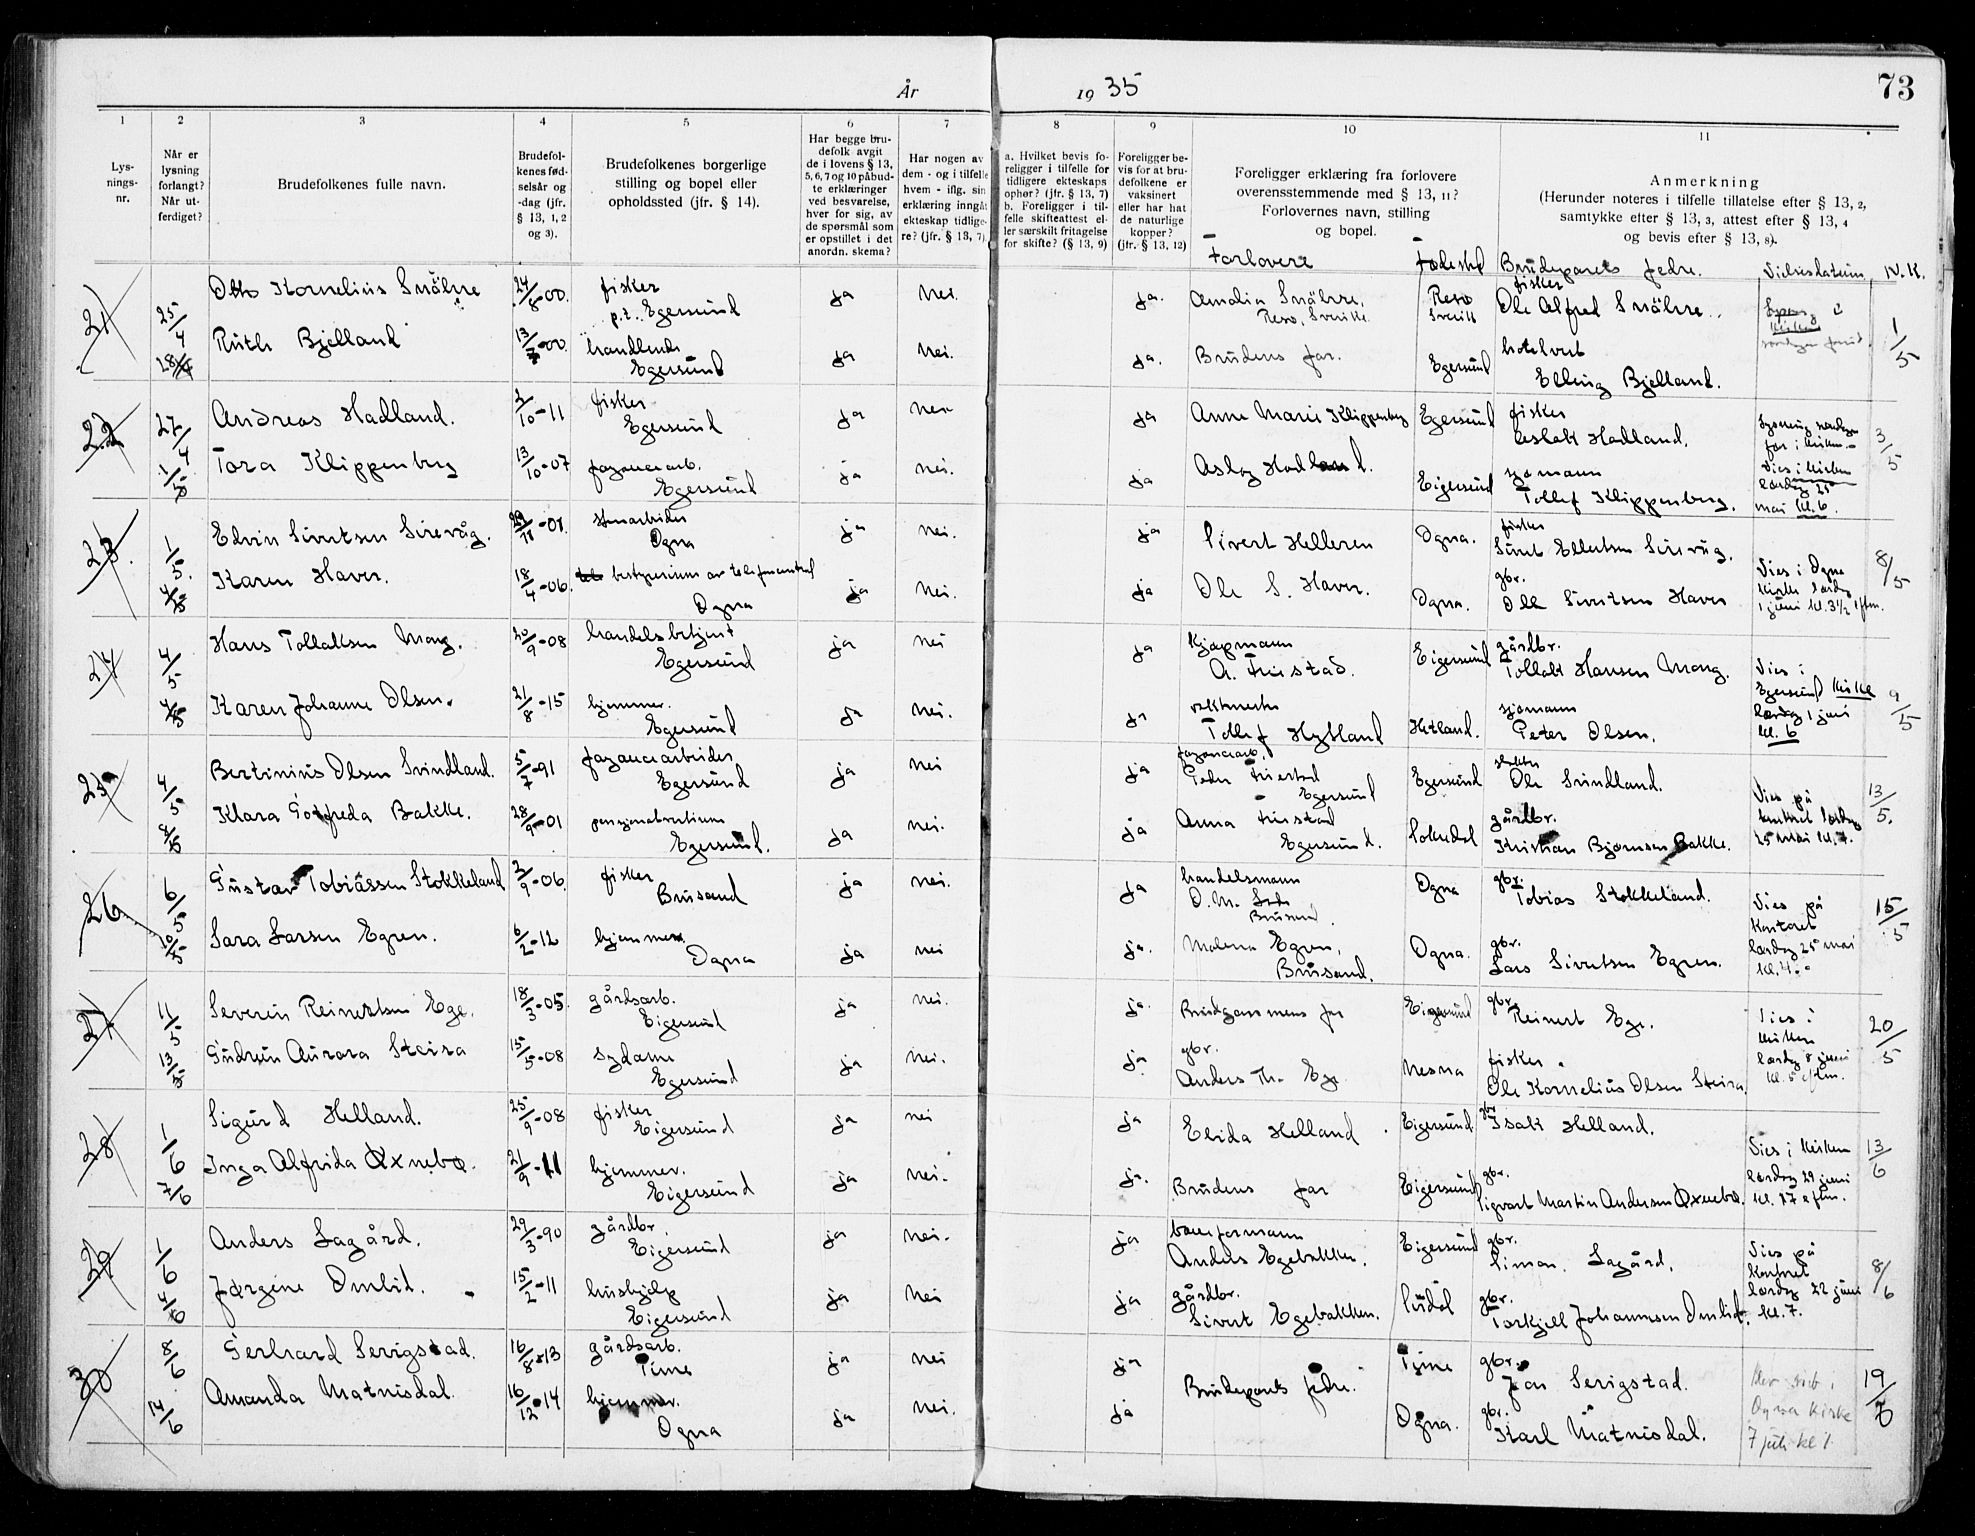 73
År 1935
1 2 3 4 5 6 7 8 9 10 11
Lysningsnr.
Når er lysning forlangt? Når utferdiget?
Brudefolkenes fulle navn.
Brudefolkenes fødselsår og -dag (jfr. § 13, 1, 2 og 3).
Brudefolkenes borgerlige stilling og bopel eller opholdssted (jfr. § 14).
Har begge brudefolk avgitt de i lovens § 13, 5, 6, 7 og 10 påbudte erklæringer ved besvarelse, hver for sig, av de spørsmål som er opstillet i det anordn. skema?
Har nogen av dem - og i tilfelle hvem - iflg. sin erklæring inngått ekteskap tidligere? (jfr. § 13, 7).
a. Hvilket bevis foreligger i tilfelle for tidligere ekteskaps ophør? (jfr. § 13, 7)
b. Foreligger i tilfelle skifteattest eller særskilt fritagelse for skifte? (§ 13, 9)
Foreligger bevis for at brudefolkene er vaksinert eller har hat de naturlige kopper? (jfr. § 13, 12)
Foreligger erklæring fra forlovere overensstemmende med § 13, 11? Forlovernes navn, stilling og bopel.
Anmerkning
(Herunder noteres i tilfelle tillatelse efter § 13, 2, samtykke efter § 13, 3, attest efter § 13, 4 og bevis efter § 13, 8).
Forlovere Fødested Brudeparets fedre. Vielsesdatum N.K.
21 25/4 Otto Kornelius Snölvre 24/8-00. fisker p.t. Egersund ja nei. ja. Amalia Snölvre, Resö, Sverike Resö Sverik fisker Ole Alfred Snölvre. 1/5
28/4 Ruth Bjelland 13/7-00. handlende Egersund ja nei. ja. Brudens far. Egersund hotelvert Elling Bjelland.
22 27/4 Andreas Hadland. 2/10-11 fisker Egersund ja nei ja Anne Marie Klippenberg Egersund fisker Aslak Hadland. 3/5
1/5 Tora Klippenberg 13/10-07 fayancearb. Egersund ja nei. ja Aslag Hadland. Eigersund sjømann Tollef Klippenberg. Vies i kirken lørdag 25 mai kl. 6.
23. 1/5. Edvin Sivertsen Sirevåg. 29/11-01. stenarbeider Ogna ja nei. ja Sivert Helleren Ogna. fisker Sivert Ellertsen Sirevåg. 8/5
4/5 Karen Haver. 18/4-06. bestyrerinne av telefoncentral Ogna ja nei. ja Ole S. Haver. Ogna. gbr. Ole Sivertsen Haver Vies i Ogna kirke lørdag 1 juni kl. 3½ eftm.
24 4/5 Hans Tollaksen Mong. 20/9-08 handelsbetjent Egersund ja nei ja kjøpmann A. Friestad. Eigersund gårdbr. Tollak Hansen Mong. 9/5
4/5 Karen Johanne Olsen. 21/8-15 hjemmev. Egersund ja nei. ja vaktmester Tollef Hytland Hetland. sjømann Peter Olsen. Vies i Egersund kirke lørdag 1 juni kl. 6
25 4/5 Bertinius Olsen Svindland. 5/7-91 fayancearbeider Egersund ja nei ja fayancearb. Peder Friestad Egersund Egersund Ole Svindland. 13/5.
8/5 Klara Gotfreda Bakke. 28/9-01 pensjonatvertinne Egersund. ja nei. ja Anna Friestad Egersund. Sokndal gårdbr. Kristian Bjørnsen Bakke. Vies på kontoret lørdag 25 mai kl. 7.
26 6/5 Gustav Tobiassen Stokkeland 2/9-06. fisker Brusand ja nei. ja handelsmann O.M. Brusand. Ogna gbr. Tobias Stokkeland. 15/5
10/5 Sara Larsen Egren. 6/2-12 hjemmev. Ogna ja nei ja. Malena Egren, Brusand. Ogna. gbr. Lars Sivertsen Egren. Vies på kontoret lørdag 25 mai kl. 4.
27 11/5 Severin Reinertsen Ege. 18/3-05. gårdsarb. Eigersund ja nei. ja. Brudgommens far Eigersund gbr. Reinert Ege. 20/5
13/5 Gudrun Aurora Steira 15/5-08 sydame Egersund ja nei. ja gbr. Anders Th. Ege. Nesna fisker. Ole Kornelius Olsen Steira. Vies i kirken lørdag 8 juni kl. 5 eftm.
28 1/6 Sigurd Helland. 25/9-08 fisker Eigersund ja nei ja Elida Helland. Eigersund gbr Isak Helland. 13/6
7/6 Inga Alfrida Øxnebø. 21/9-11 hjemmev. Eigersund ja nei. ja. Brudens far Eigersund gbr. Sigvart Martin Andersen Øxnebø. Vies i kirken lørdag 29 juni kl. 7 eftm.
29 1/6 Anders Lagård. 29/3-90 gårdbr Eigersund ja nei. ja baneformann Anders Egebakken. Eigersund gbr. Simon Lagård. 8/6
4/6 Jørgine Omlid. 15/2-11 hushjelp Eigersund ja nei ja gårdbr. Sivert Egebakken. Sirdal gbr. Torkjell Johannesen Omlid. Vies på kontoret lørdag 22 juni kl. 7.
30 8/6 Gerhard Serigstad. 16/8-13 gårdsarb. Time ja nei ja Brudeparets fedre. Time gbr. Jon Serigstad. 19/6
14/6 Amanda Matnisdal. 16/12-14 hjemmev. Ogna ja nei. ja Ogna. gbr. Karl Matnisdal. Ogna kirke 7 juli kl 1.